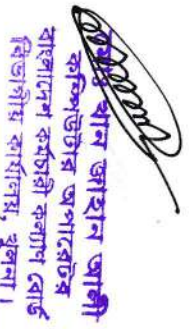 মোঃ খান জাহান আলী
কম্পিউটার অপারেটর
বাংলাদেশ কর্মচারী কল্যাণ বোর্ড
বিভাগীয় কার্যালয়, খুলনা।